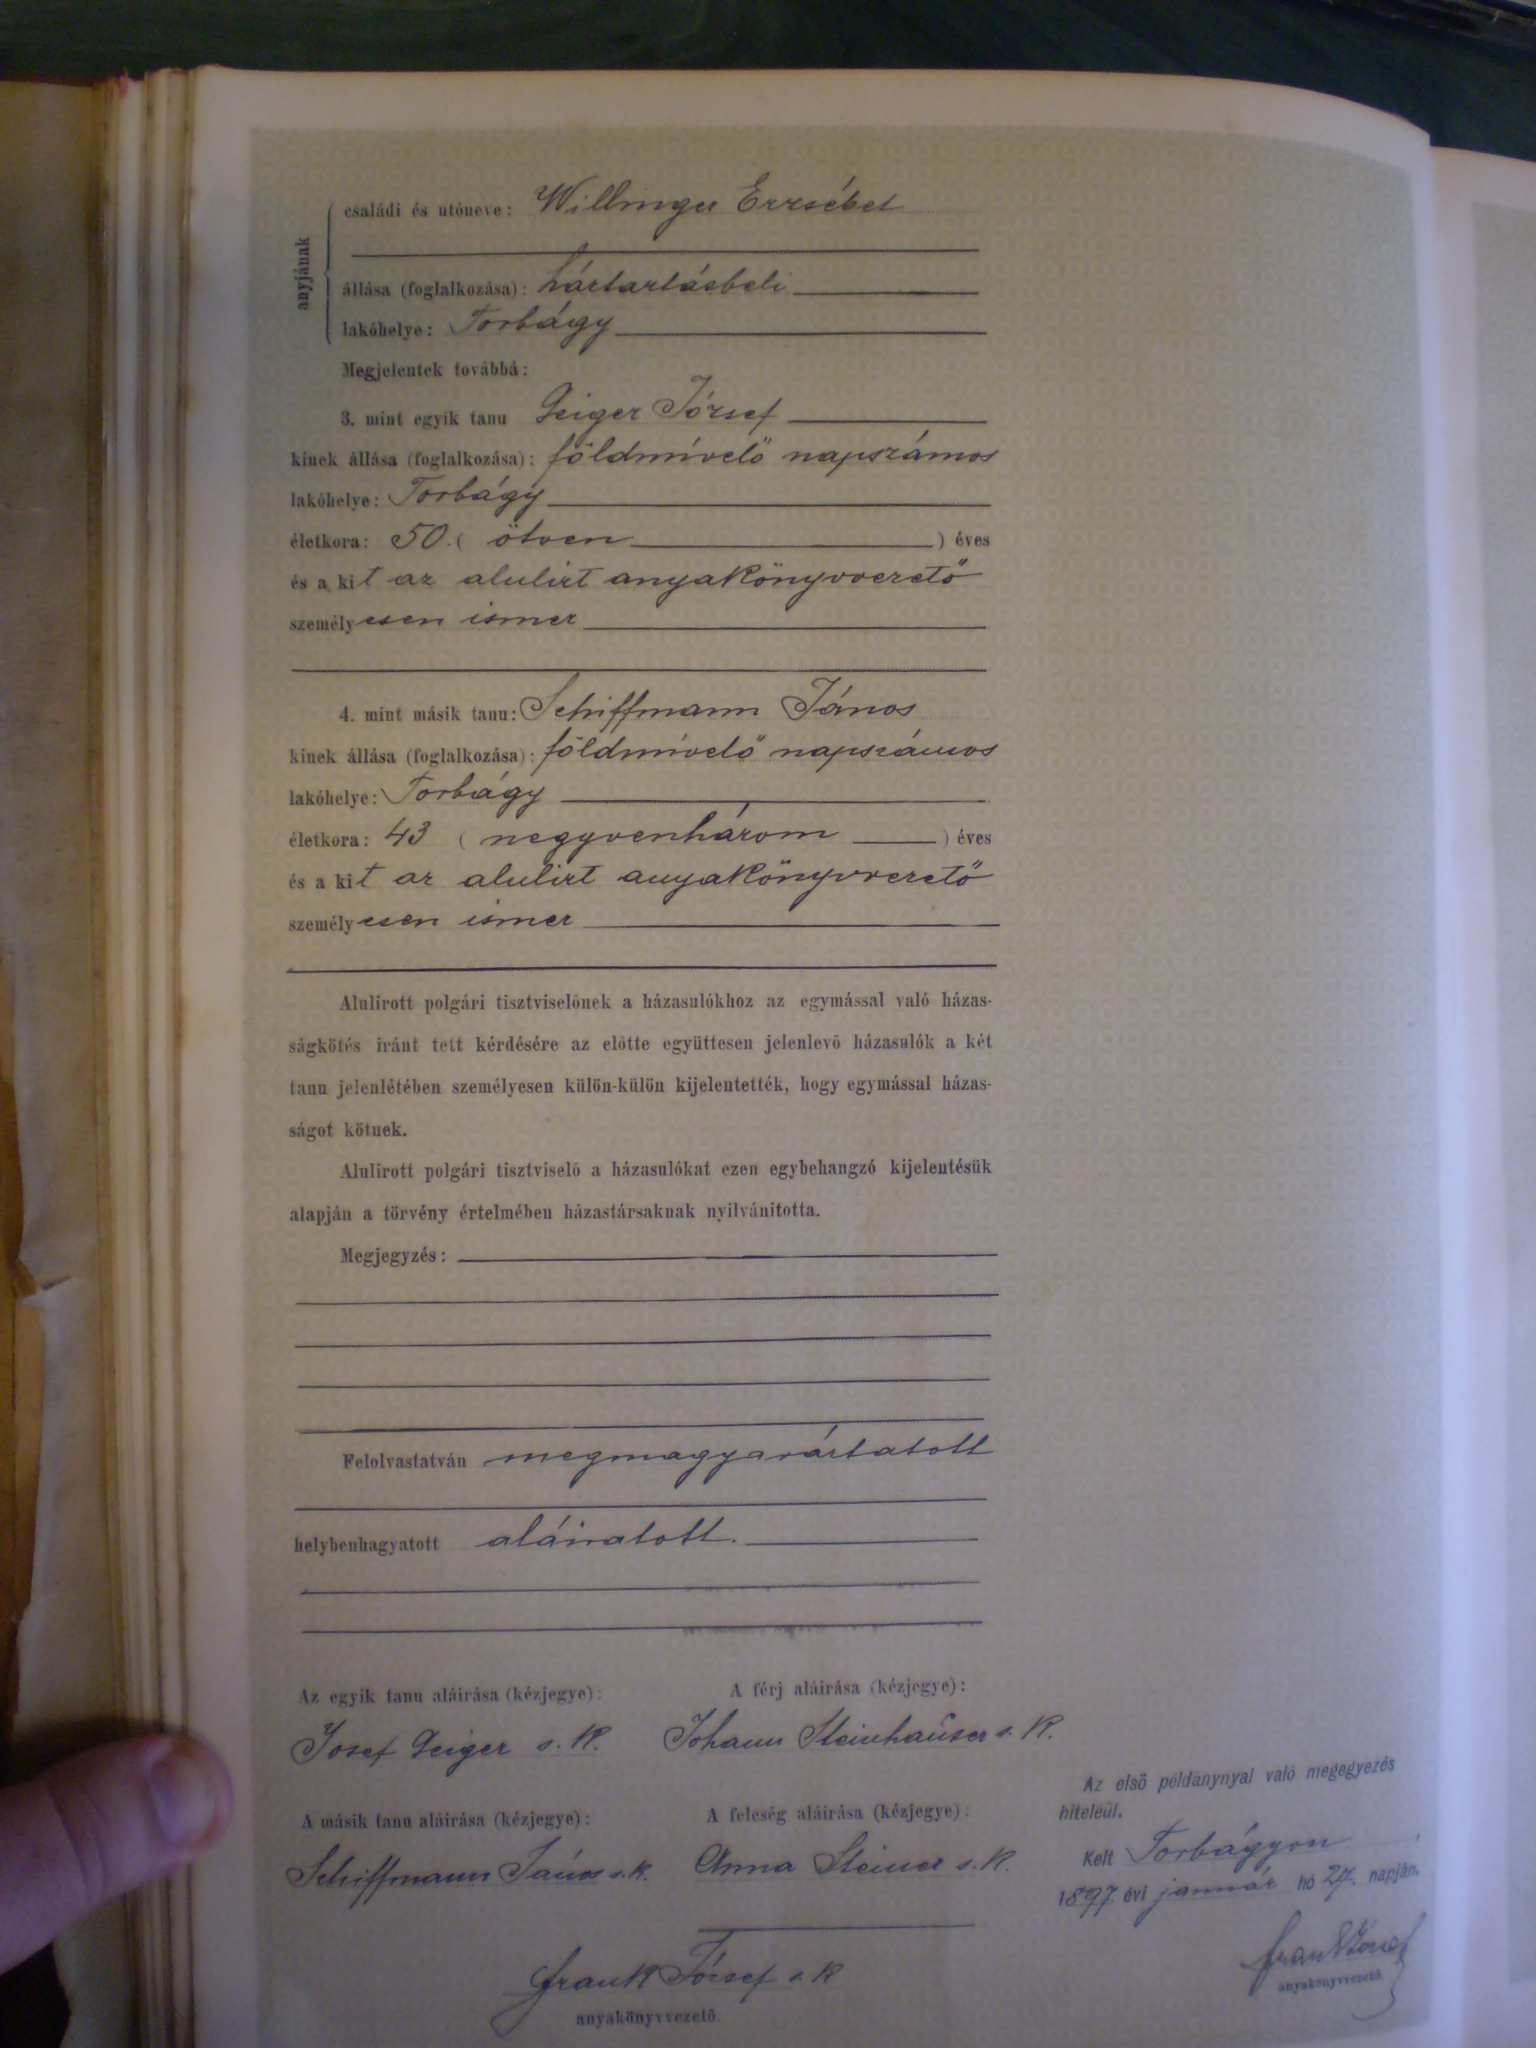 anyjának
családi és utóneve: Willinger Erzsébet
állása (foglalkozása): háztartásbeli
lakóhelye: Torbágy
Megjelentek továbbá:
3. mint egyik tanu Geiger József
kinek állása (foglalkozása): földmívelő napszámos
lakóhelye: Torbágy
életkora: 50. (ötven) éves
és a kit az alulirt anyakönyvvezető
személyesen ismer
4. mint másik tanu: Schiffmann János
kinek állása (foglalkozása): földmívelő napszámos
lakóhelye: Torbágy
életkora: 43 (negyvenhárom) éves
és a kit az alulirt anyakönyvvezető
személyesen ismer
Alulirott polgári tisztviselőnek a házasulókhoz az egymással való házas-
ságkötés iránt tett kérdésére az előtte együttesen jelenlevő házasulók a két
tanu jelenlétében személyesen külön-külön kijelentették, hogy egymással házas-
ságot kötnek.
Alulirott polgári tisztviselő a házasulókat ezen egybehangzó kijelentésük
alapján a törvény értelmében házastársaknak nyilvánitotta.
Megjegyzés:
Felolvastatván megmagyaráztatott
helybenhagyatott aláiratott.
Az egyik tanu aláirása (kézjegye): A férj aláirása (kézjegye):
Josef Geiger s. k. Johann Steinhauser s. k.
A másik tanu aláirása (kézjegye): A feleség aláirása (kézjegye):
Schiffmann János s. k. Anna Steiner s. k.
Frank József s. k
anyakönyvvezető.
Az első példánynyal való megegyezés
hiteléül.
Kelt Torbágyon
1897. évi január hó 27. napján.
Frank József
anyakönyvvezető.